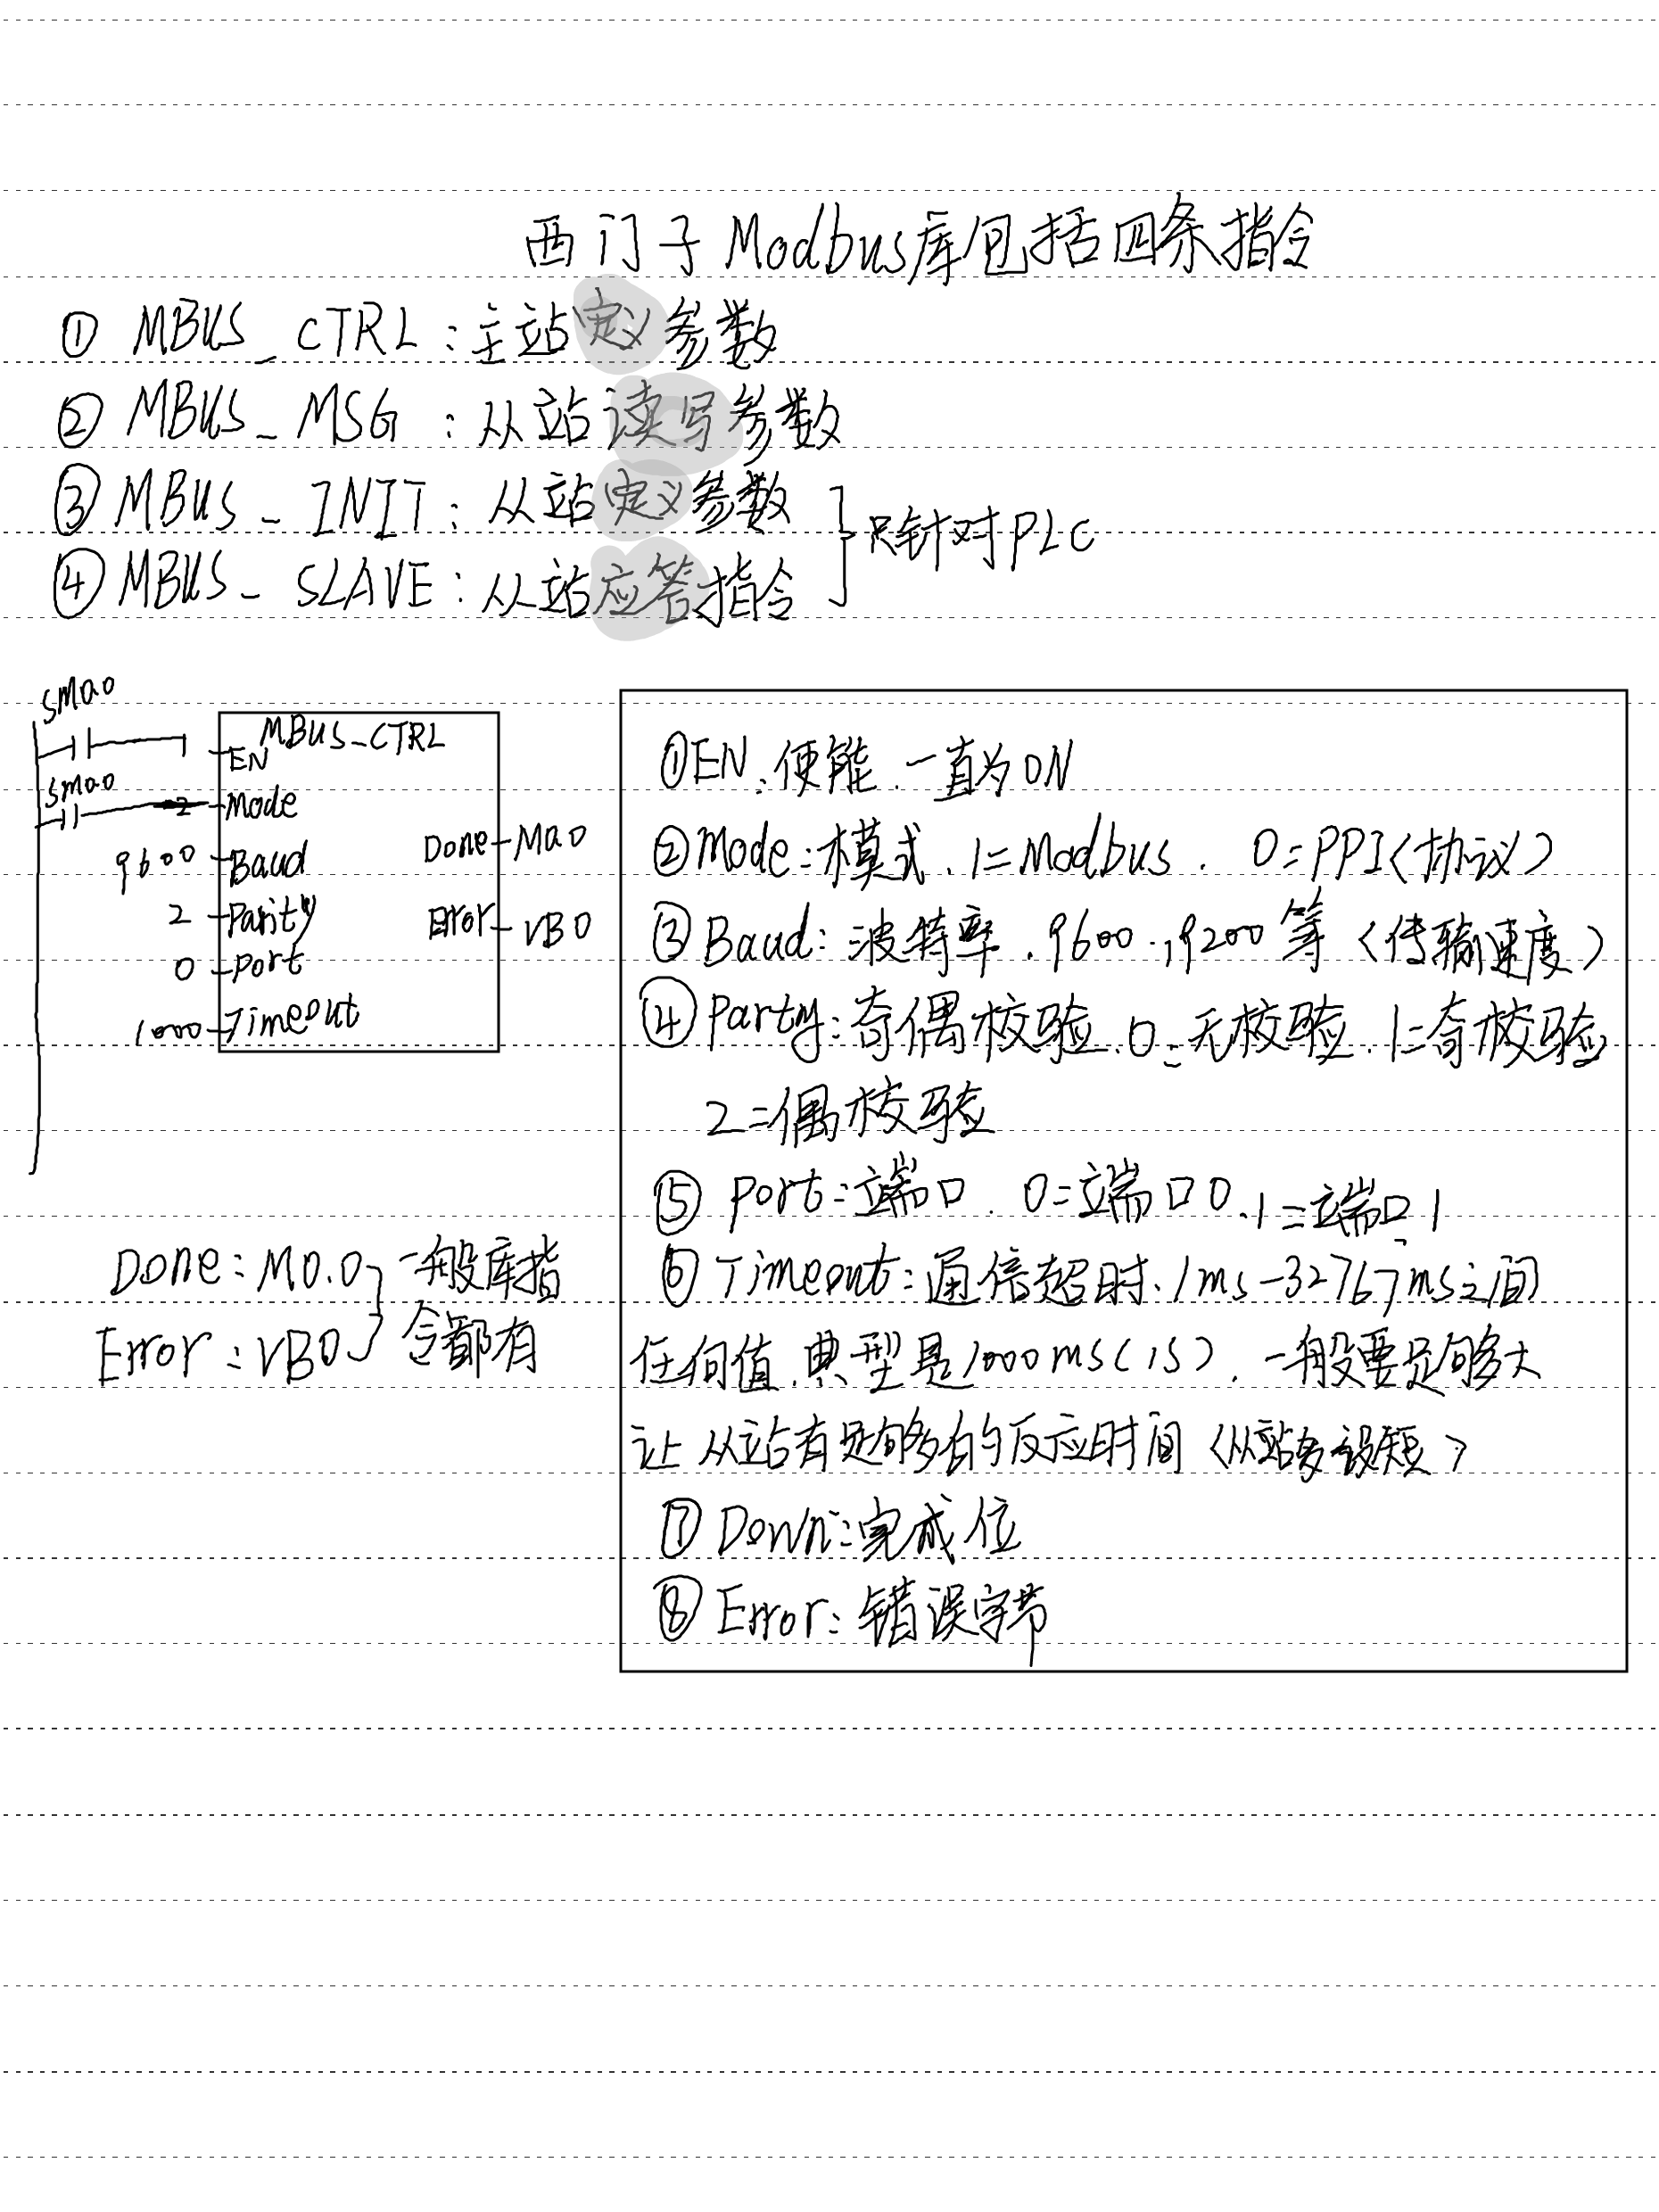 西门子Modbus库包括四条指令
① MBUS_CTRL:主站定义参数
② MBUS_MSG:从站读写参数
③ MBUS_INIT:从站定义参数
④ MBUS_SLAVE:从站应答指令
只针对PLC
SM0.0
MBUS_CTRL
EN
SM0.0
Mode
9600 Baud
Done M0.0
2 Parity
Error VB0
0 Port
1000 Timeout
Done:M0.0
Error:VB0
一般库指
令都有
①EN:使能.一直为ON
②Mode:模式.1=Modbus. 0=PPI(协议)
③Baud:波特率.9600.19200等(传输速度)
④Party:奇偶校验.0=无校验.1=奇校验
2=偶校验
⑤Port:端口.0=端口0.1=端口1
⑥Timeout:通信超时.1ms-32767ms之间
任何值.典型是1000ms(1s).一般要足够大
让从站有足够多的反应时间(从站多设短)
⑦Down:完成位
⑧Error:错误字节